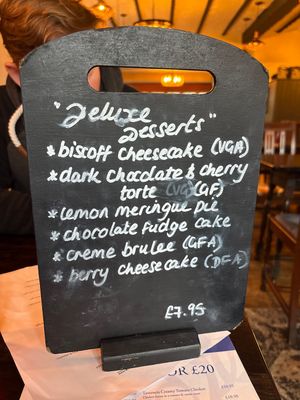 "Deluxe
Desserts"
* biscoff cheesecake (VGA)
* dark chocolate & cherry
torte (VG) (GF)
* lemon meringue pie
* chocolate fudge cake
* creme brulee (GFA)
* berry cheesecake (DFA)
£7.95
OR £20